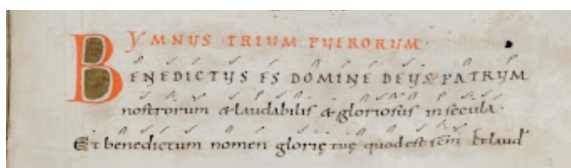 YMNUS TRIUM PUERORUM·
BENEDICTUS ES DOMINE DEUS PATRUM
nostrorum & laudabilis & gloriosus in secula·
Et benedictum nomen glorię tuę quod est scm̄ Et laud